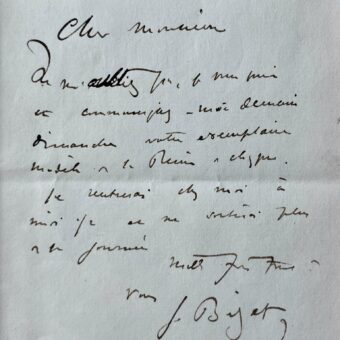 Cher monsieur
Ne m'oubliez pas, je vous prie
et communiquez-moi demain
dimanche votre exemplaire
modèle de la Reine de chypre.
Je rentrerai chez moi à
midi et ne sortirai plus
de la journée
tout à
vous
G. Bizet